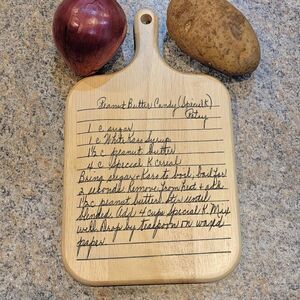 Peanut Butter Candy (Special K)
Patsy
1 c. sugar
1 c. White Karo Syrup
1½ c. peanut butter
4 c. Special K cereal
Bring sugar & Karo to boil, boil for
2 seconds. Remove from heat & add
1½ c peanut butter. Stir until
blended. Add 4 cups Special K. Mix
well. Drop by teaspoon on waxed
paper.